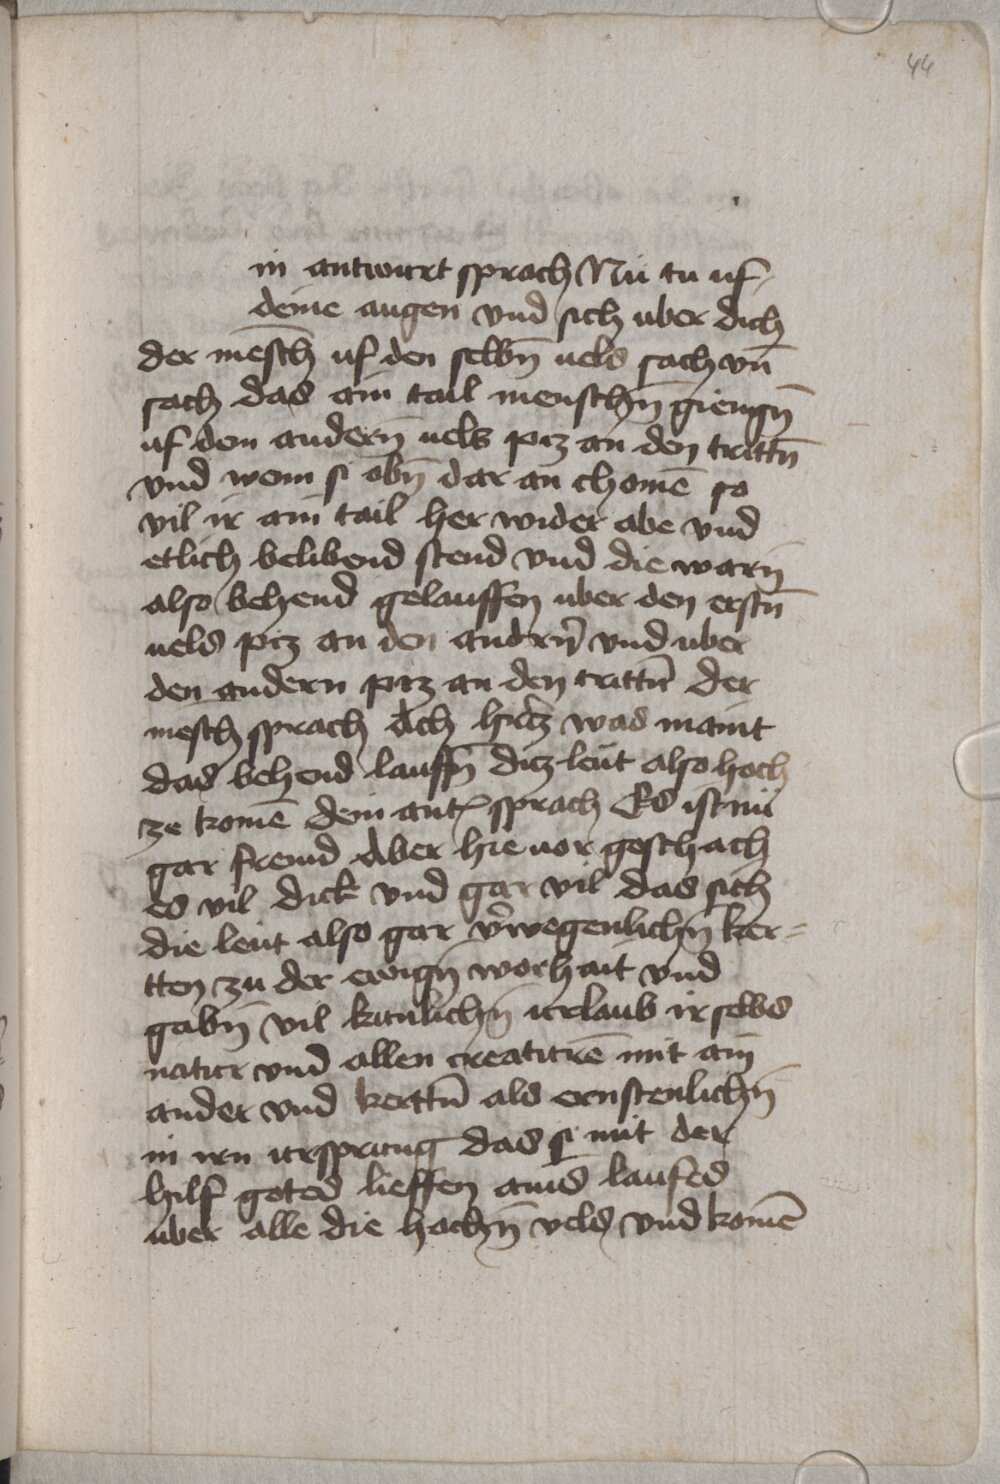 44
in antwurt sprach Nu tu uf
deine augen vnd sich uber dich
der mesch̄ uf den selbn̄ uels sach vn̄
sach das ain tail menschn̄ giengn̄
uf dem andern̄ uels piz an den trittn̄
vnd wenn si obn̄ dar an chomē so
vil ir ain tail her wider abe vnd
etlich belibend stend vnd die warn̄
also behend gelauffen uber den erstn̄
uels piz an den andrn̄ vnd uber
den andern piz an den trittn̄ der
mesch sprach Ach hertz was maint
das behend lauffn̄ diz leut also hoch
ze komē dem ant sprach Es ist nu
gar fremd Aber hie uor geschach
es vil dick vnd gar vil das sich
die leut also gar v̓wegenlichn̄ ker-
tten zu der ewign̄ worhait vnd
gabn̄ vil kunlichn̄ urlaub ir selbs
natur vnd allen creaturē mit ain
ander vnd kerttn̄ als ernstenlichn̄
in irn ursprung das si mit der
hilf gotes lieffen ains laufes
uber alle die hochn̄ vels vnd komē